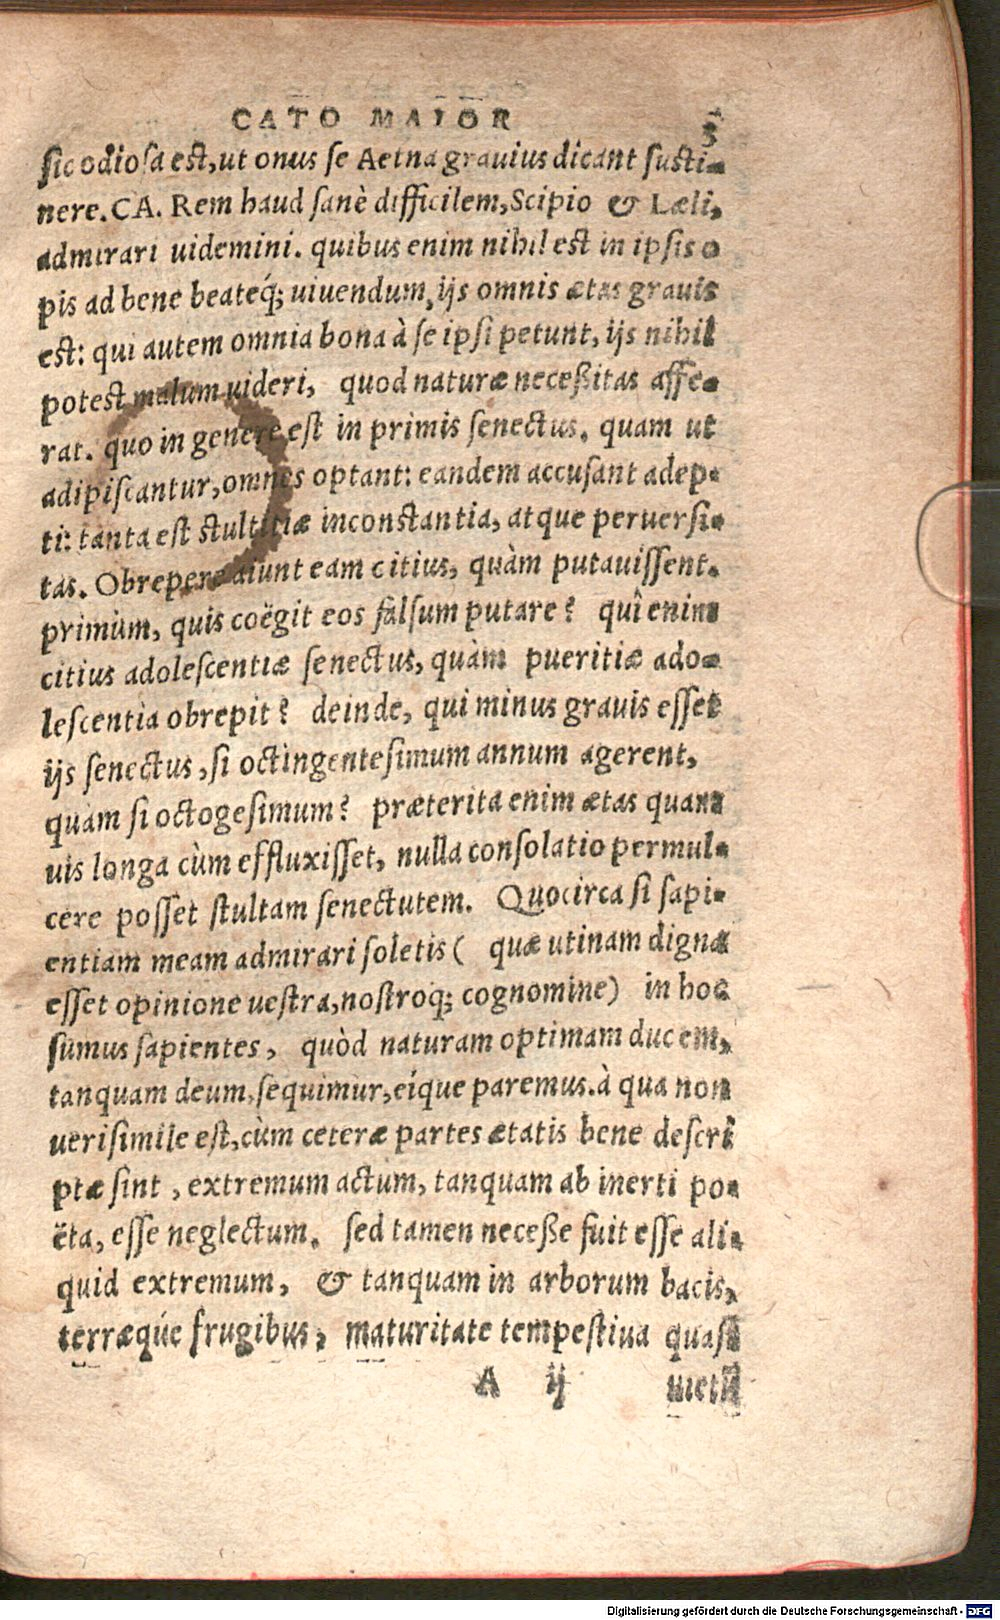 CATO MAIOR 3
sic odiosa est, ut onus se Aetna grauius dicant susti-
nere. CA. Rem haud sanè difficilem, Scipio & Læli,
admirari uidemini. quibus enim nihil est in ipsis o
pis ad bene beateq́; uiuendum, ijs omnis ætas grauis
est: qui autem omnia bona à se ipsi petunt, ijs nihil
potest malum uideri, quod naturæ neceßitas affe-
rat. quo in genere est in primis senectus. quam ut
adipiscantur, omnes optant: eandem accusant adep-
ti: tanta est stultitiæ inconstantia, atque peruersi-
tas. Obrepere aiunt eam citius, quàm putauissent.
primùm, quis coëgit eos falsum putare? quî enim
citius adolescentiæ senectus, quàm pueritiæ ado-
lescentia obrepit? deinde, qui minus grauis esset
ijs senectus, si octingentesimum annum agerent,
quàm si octogesimum? præterita enim ætas quam
uis longa cùm effluxisset, nulla consolatio permul-
cere posset stultam senectutem. Quocirca si sapi-
entiam meam admirari soletis ( quæ utinam digna
esset opinione uestra, nostroq́; cognomine) in hoc
sumus sapientes, quòd naturam optimam ducem,
tanquam deum, sequimur, eíque paremus. à qua non
uerisimile est, cùm ceteræ partes ætatis bene descri
ptæ sint, extremum actum, tanquam ab inerti po-
ëta, esse neglectum. sed tamen neceße fuit esse ali-
quid extremum, & tanquam in arborum bacis,
terræqúe frugibus, maturitate tempestiua quasi
A ij uietu
Digitalisierung gefördert durch die Deutsche Forschungsgemeinschaft - DFG